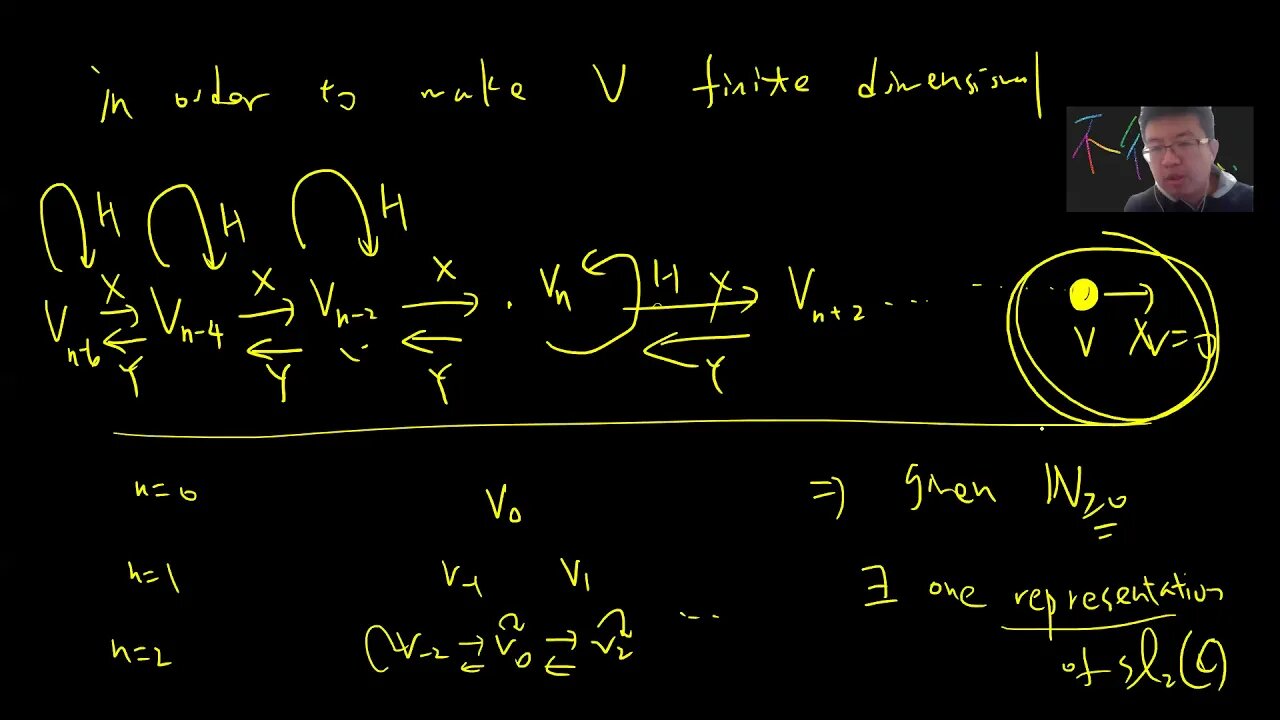 in order to make V finite dimensional
H H H
X X X H X
V_{n-6} V_{n-4} V_{n-2} . V_n V_{n+2} ... ... V Xv=0
Y Y Y Y
n=0 V_0 ⇒ given ℕ_{≥0}
n=1 V_{-1} V_1 ∃ one representation
n=2 V_{-2} V_0 V_2 ... of sl_2(C)
不